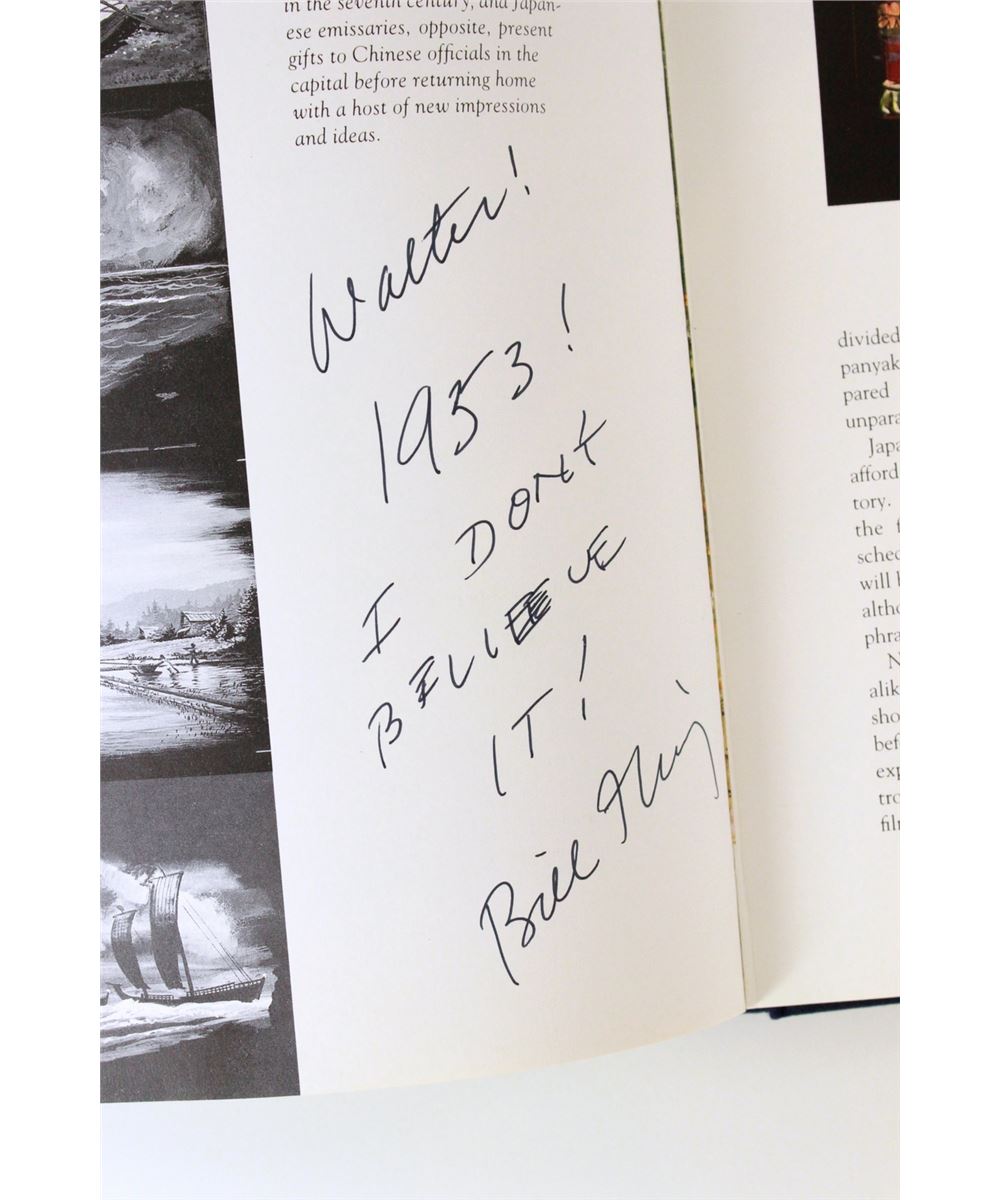 in the seventh century, and Japan-
ese emissaries, opposite, present
gifts to Chinese officials in the
capital before returning home
with a host of new impressions
and ideas.
Walter!
1953!
I DON'T
BELIEVE
IT!
Bill
divided
panyak
pared
unpara
Japa
afford
tory.
the f
sched
will
altho
phra
N
alik
sho
bef
exp
tro
film